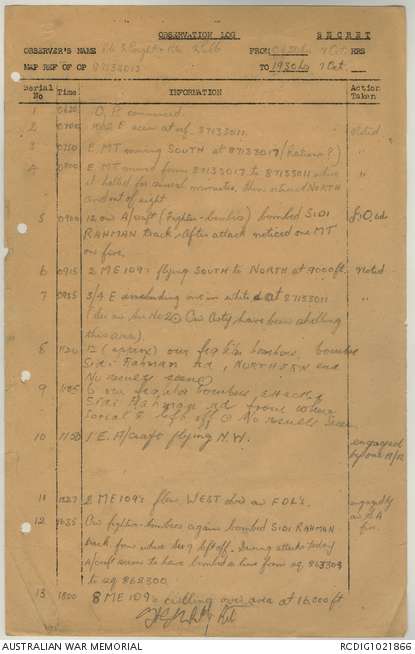 OBSERVATION LOG SECRET
OBSERVER'S NAME Pte Wright & Pte Webb FROM 0630 hrs 7 Oct. HRS
MAP REF OF OP 87133013 TO 1930 hrs 7 Oct.
Serial No Time INFORMATION Action Taken
1 0630 O.P. commenced.
2 0700 E seen at ref. 87133011. Noted
3 0750 E MT moving SOUTH at 87133017 (Rations?) "
4 0800 E MT moved from 87133017 to 87133011 where "
it halted for several minutes, then returned NORTH
and out of sight
5 0900 12 our A/craft (Fighter-bombers) bombed SIDI
RAHMAN track. After attack noticed one MT
on fire.
6 0915 2 ME 109's flying SOUTH to NORTH at 9000 ft. Noted
7 0925 3/4 E including one in white at 87133011 "
(Our Arty have been shelling
this area)
8 1120 12 (approx) our fighter bombers, bombed
Sidi Rahman rd, NORTHERN end
No results seen
9 6 our fighter bombers, attacked
Sidi Rahman rd from where
Serial 8 left off. No results seen
10 1150 1 E. A/craft flying N.W. engaged by our A/A
11 1227 2 ME 109's flew WEST over our FDL's. engaged by our A/A fire.
12 1635 Our fighter-bombers again bombed SIDI RAHMAN
track from where Ser 9 left off. During attacks today
A/craft seem to have bombed a line from sq. 863303
to sq 868300.
13 1800 8 ME 109's circling over area at 16,000 ft
AUSTRALIAN WAR MEMORIAL RCDIG1021866